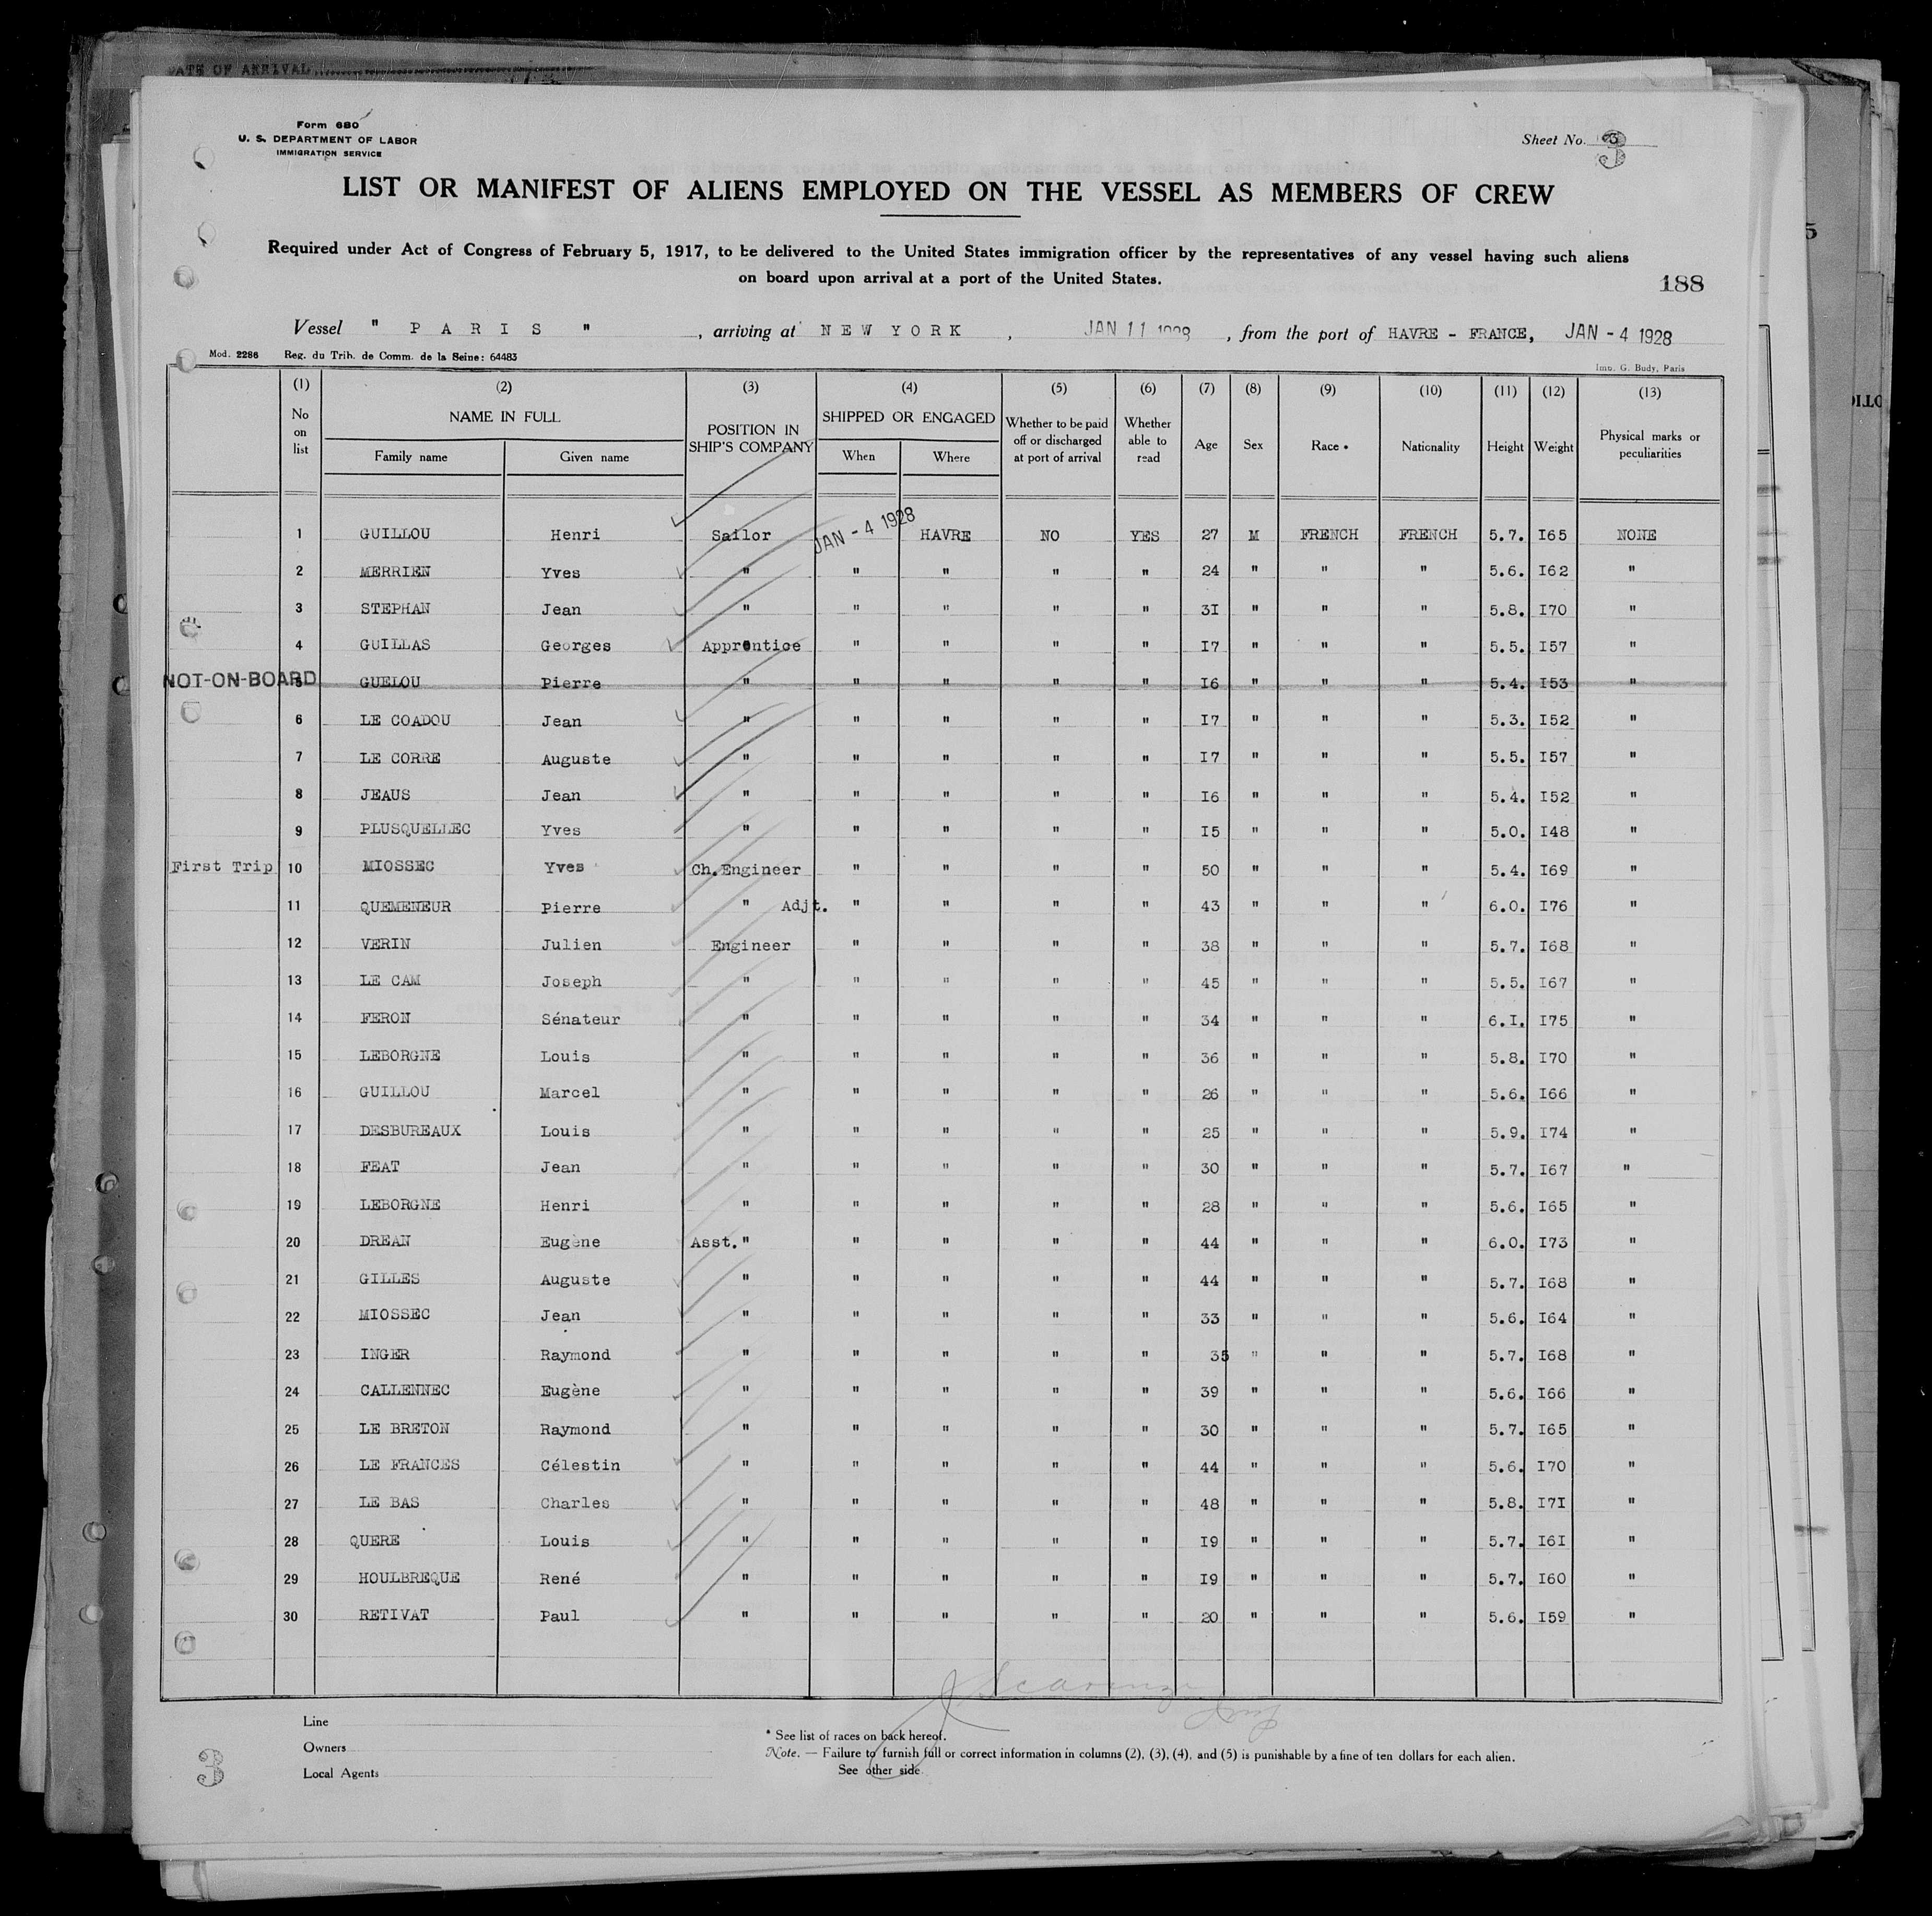 DATE OF ARRIVAL
Form 680
U. S. DEPARTMENT OF LABOR
IMMIGRATION SERVICE
Sheet No. 3
3
LIST OR MANIFEST OF ALIENS EMPLOYED ON THE VESSEL AS MEMBERS OF CREW
Required under Act of Congress of February 5, 1917, to be delivered to the United States immigration officer by the representatives of any vessel having such aliens
on board upon arrival at a port of the United States.
188
Vessel " PARIS ", arriving at NEW YORK, JAN 11 1928, from the port of HAVRE - FRANCE, JAN - 4 1928
Mod. 2286 Reg. du Trib. de Comm. de la Seine: 64483
Imp. G. Budy, Paris
(1) (2) (3) (4) (5) (6) (7) (8) (9) (10) (11) (12) (13)
No on list NAME IN FULL Family name Given name POSITION IN SHIP'S COMPANY SHIPPED OR ENGAGED When Where Whether to be paid off or discharged at port of arrival Whether able to read Age Sex Race * Nationality Height Weight Physical marks or peculiarities
1 GUILLOU Henri Sailor JAN - 4 1928 HAVRE NO YES 27 M FRENCH FRENCH 5.7. I65 NONE
2 MERRIEN Yves " " " " " 24 " " " 5.6. I62 "
3 STEPHAN Jean " " " " " 3I " " " 5.8. I70 "
4 GUILLAS Georges Apprentice " " " " I7 " " " 5.5. I57 "
NOT-ON-BOARD 5 GUELOU Pierre " " " " " I6 " " " 5.4. I53 "
6 LE COADOU Jean " " " " " I7 " " " 5.3. I52 "
7 LE CORRE Auguste " " " " " I7 " " " 5.5. I57 "
8 JEAUS Jean " " " " " I6 " " " 5.4. I52 "
9 PLUSQUELLEC Yves " " " " " I5 " " " 5.0. I48 "
First Trip 10 MIOSSEC Yves Ch.Engineer " " " " 50 " " " 5.4. I69 "
11 QUEMENEUR Pierre " Adjt. " " " " 43 " " " 6.0. I76 "
12 VERIN Julien Engineer " " " " 38 " " " 5.7. I68 "
13 LE CAM Joseph " " " " " 45 " " " 5.5. I67 "
14 FERON Sénateur " " " " " 34 " " " 6.I. I75 "
15 LEBORGNE Louis " " " " " 36 " " " 5.8. I70 "
16 GUILLOU Marcel " " " " " 26 " " " 5.6. I66 "
17 DESBUREAUX Louis " " " " " 25 " " " 5.9. I74 "
18 FEAT Jean " " " " " 30 " " " 5.7. I67 "
19 LEBORGNE Henri " " " " " 28 " " " 5.6. I65 "
20 DREAN Eugène Asst." " " " " 44 " " " 6.0. I73 "
21 GILLES Auguste " " " " " 44 " " " 5.7. I68 "
22 MIOSSEC Jean " " " " " 33 " " " 5.6. I64 "
23 INGER Raymond " " " " " 35 " " " 5.7. I68 "
24 CALLENNEC Eugène " " " " " 39 " " " 5.6. I66 "
25 LE BRETON Raymond " " " " " 30 " " " 5.7. I65 "
26 LE FRANCES Célestin " " " " " 44 " " " 5.6. I70 "
27 LE BAS Charles " " " " " 48 " " " 5.8. I7I "
28 QUERE Louis " " " " " I9 " " " 5.7. I6I "
29 HOULBREQUE René " " " " " I9 " " " 5.7. I60 "
30 RETIVAT Paul " " " " " 20 " " " 5.6. I59 "
Line
Owners
Local Agents
* See list of races on back hereof.
Note. — Failure to furnish full or correct information in columns (2), (3), (4), and (5) is punishable by a fine of ten dollars for each alien.
See other side
3